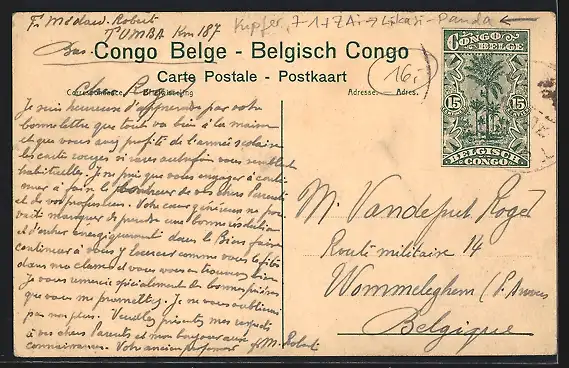 Fr. Médard-Robert
TUMBA Km 187
Bas
Kupfer, 7-1+ZAi→Likasi-Panda ←
Congo Belge - Belgisch Congo
Carte Postale - Postkaart
Correspondance
Adresse: Adres.
16.-
CONGO BELGE
15 15
BELGISCH CONGO
Cher Roger
Je suis heureux d'apprendre par votre
bonne lettre que tout va bien à la maison
et que vous avez profité de l'année scolaire
les cartes rouges si vous
habituelles. Je ne puis que vous engager à conti-
nuer à faire le bonheur de vos chers Parents
et de vos professeurs. Votre cœur généreux ne pou-
vait manquer de prendre une bonne résolution
et d'entrer énergiquement dans le Bien faire
continuer à vous y exercer comme vous le fîtes
dans ma classe et vous vous en trouverez bien
Je vous remercie spécialement des bonnes prières
que vous me promettez. Je ne vous oublierai
pas non plus. Veuillez présenter mes respects
à vos chers Parents et mon bonjour aux
connaissances. Votre ancien professeur fr. M. Robert
M. Vandeput Roger
Route militaire 14
Wommelghem (P. Anvers
Belgique